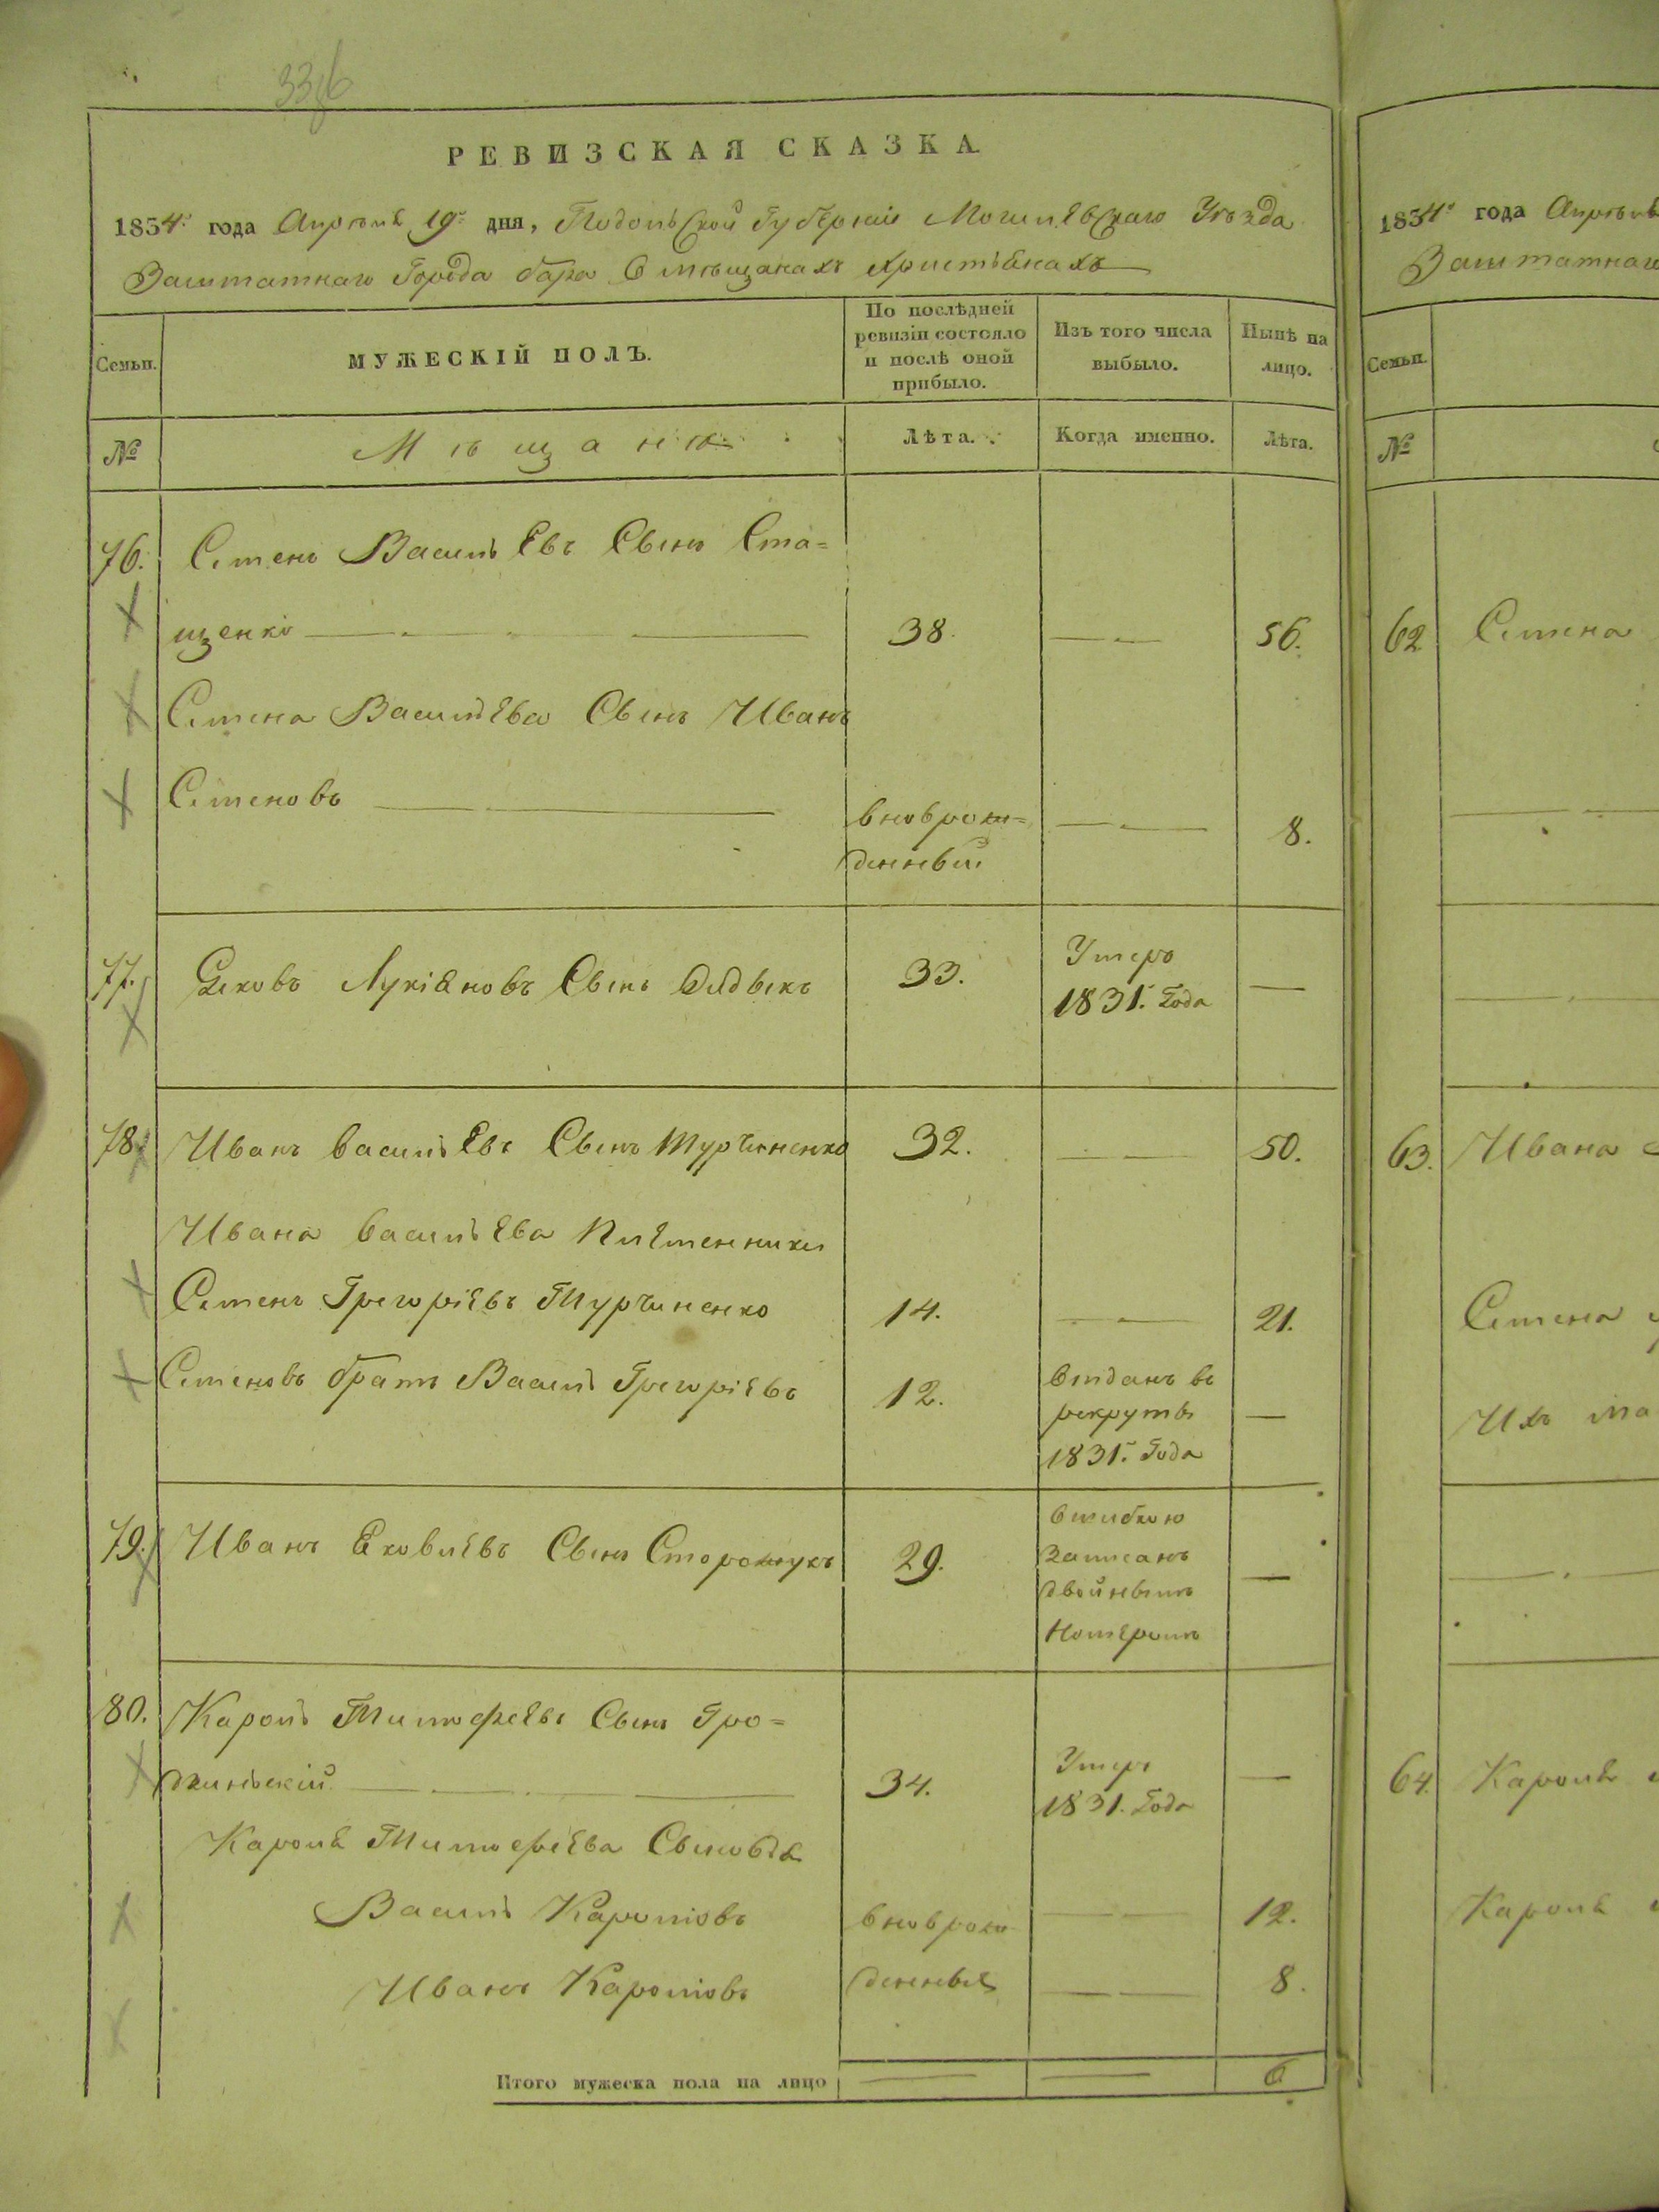 3376
РЕВИЗСКАЯ СКАЗКА
1834. года Апрѣля 19 дня, Подольской Губерніи Могилевскаго Уѣзда
Заштатнаго Города бара О мѣщанахъ христіянахъ
Семьи.
МУЖЕСКІЙ ПОЛЪ.
По послѣдней ревизіи состояло и послѣ оной прибыло.
Изъ того числа выбыло.
Нынѣ на лицо.
№
Мѣщане
Лѣта.
Когда именно.
Лѣта.
76. Семенъ Васильевъ Сынъ Ста=
щенко 38. 56.
Семена Васильева Сынъ Иванъ
Семеновъ вноврож=
денный 8.
77. Яковъ Лукіяновъ Сынъ 33. Умеръ
1831. Года
78. Иванъ васильевъ Сынъ Турчиненко 32. 50.
Ивана васильева Племенники
Семенъ Григоріевъ Турчиненко 14. 21.
Семеновъ братъ Василь Григоріевъ 12. Отданъ въ
рекруты
1831. Года
79. Иванъ Яковлевъ Сынъ Сторожукъ 29. Ошибкою
записанъ
двойнымъ
Номеромъ
80. Кароль Тимофеевъ Сынъ Гро=
34. Умеръ
1831. Года
Кароля Тимофеева Сыновья
Василь Кароловъ вноврож 12.
Иванъ Кароловъ денныя 8.
Итого мужеска пола на лицо 6
1834 года Апрѣля
Заштатнаго
Семьи.
№
62 Семена
63. Ивана
Семена
Ихъ ма
64. Кароля
Кароля